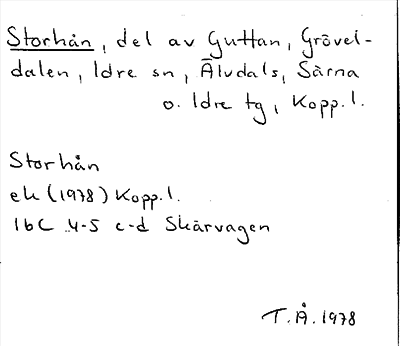 Storhån, del av Guttan, Grövel-
dalen, Idre sn, Älvdals, Särna
o. Idre tg, Kopp.l.
Storhån
ek (1978) Kopp.l.
16C 4-5 c-d Skärvagen
T.Å. 1978